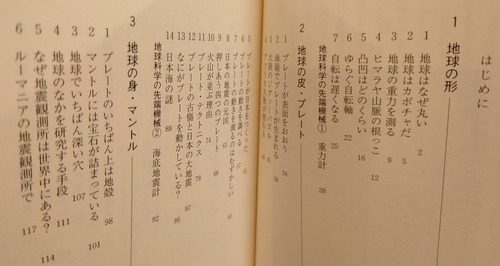 はじめに
1 地球の形
1 地球はなぜ丸い 2
2 地球はカボチャだ 5
3 地球の重力を測る 9
4 ヒマラヤ山脈の根っこ 12
5 凸凹はどのくらい 16
6 ゆらぐ自転軸 22
7 自転は遅くなる 25
地球科学の先端機械① 重力計 28
2 地球の皮・プレート
1 プレートが表面をおおう
2 海嶺でプレートが生まれる
3 大陸のジグソーパズル
8 日本の地震
9 押しあう四つのプレート
10 火山が並ぶ理由 74
11 プレート・テクトニクス 78
12 プレートの古傷と日本の大地震
13 なにがプレートを動かしている? 86
14 日本海の謎 88
地球科学の先端機械② 海底地震計 92
3 地球の身・マントル
1 プレートのいちばん上は地殻 98
2 マントルには宝石が詰まっている 101
3 地球でいちばん深い穴 107
4 地球のなかを研究する手段 111
5 なぜ地震観測所は世界中にある? 114
6 ルーマニアの地震観測所で 117